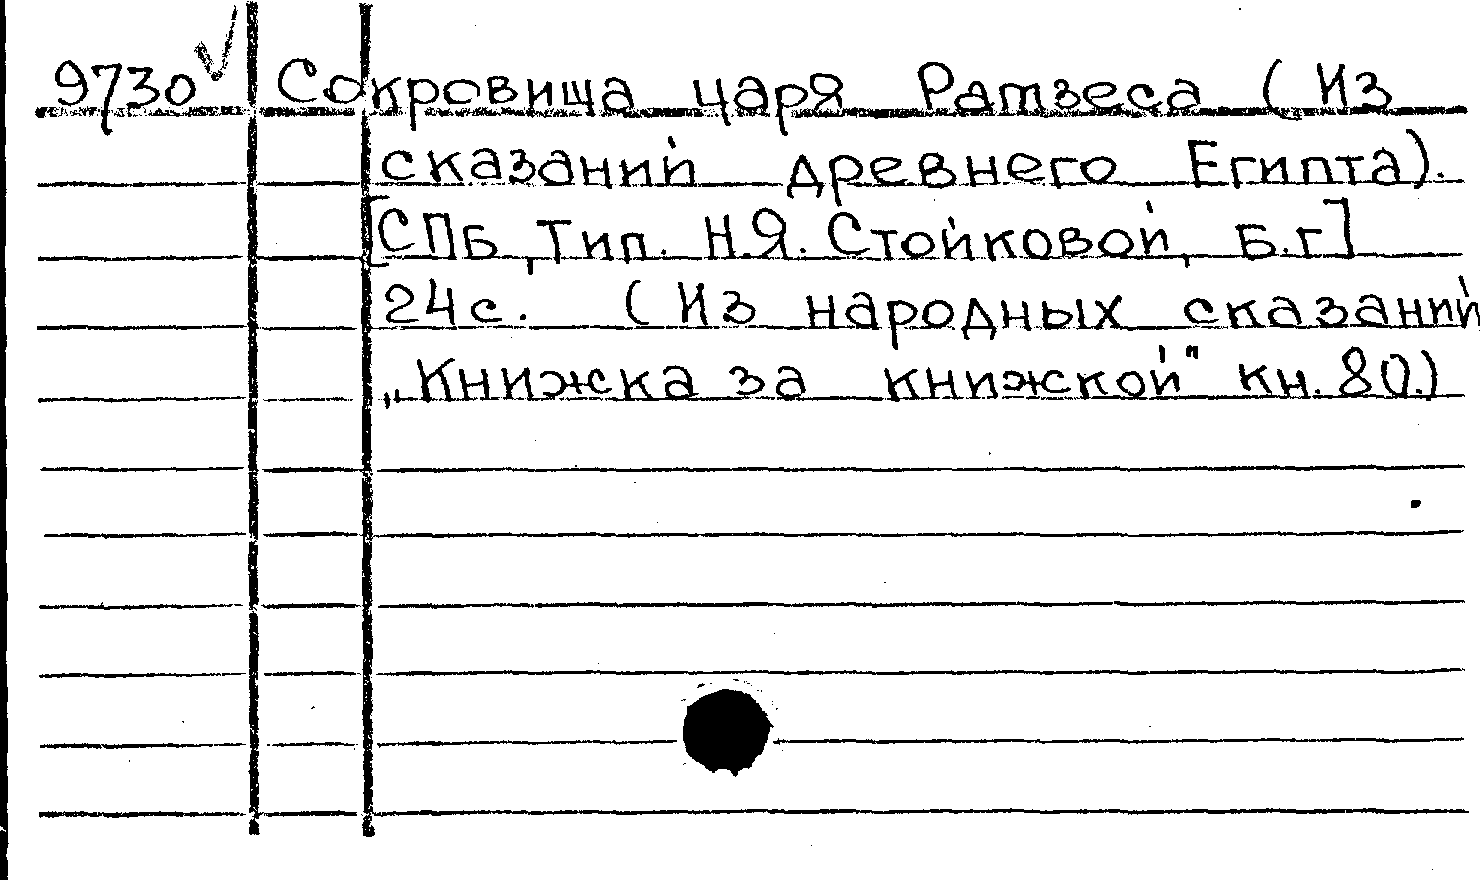 9730 Сокровища царя Рамзеса (Из
сказаний древнего Египта).
[СПБ, Тип. Н.Я. Стойковой, Б.г]
24с. (Из народных сказаний
„Книжка за книжкой" кн. 80.)